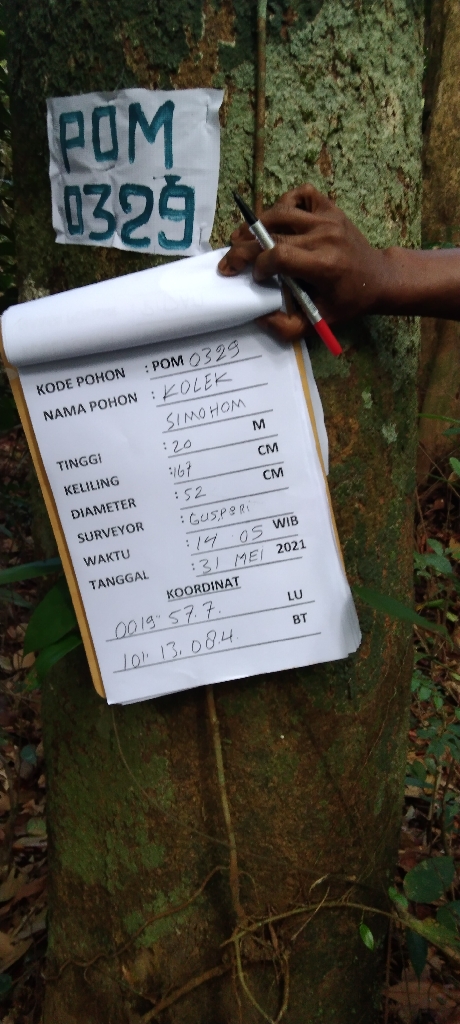 POM
0329
KODE POHON : POM 0329
NAMA POHON : KOLEK
SIMOHOM
TINGGI : 20 M
KELILING : 167 CM
DIAMETER : 52 CM
SURVEYOR : GUSPARI
WAKTU : 14 05 WIB
TANGGAL : 31 MEI 2021
KOORDINAT
0019° 57.7. LU
101. 13. 08.4. BT